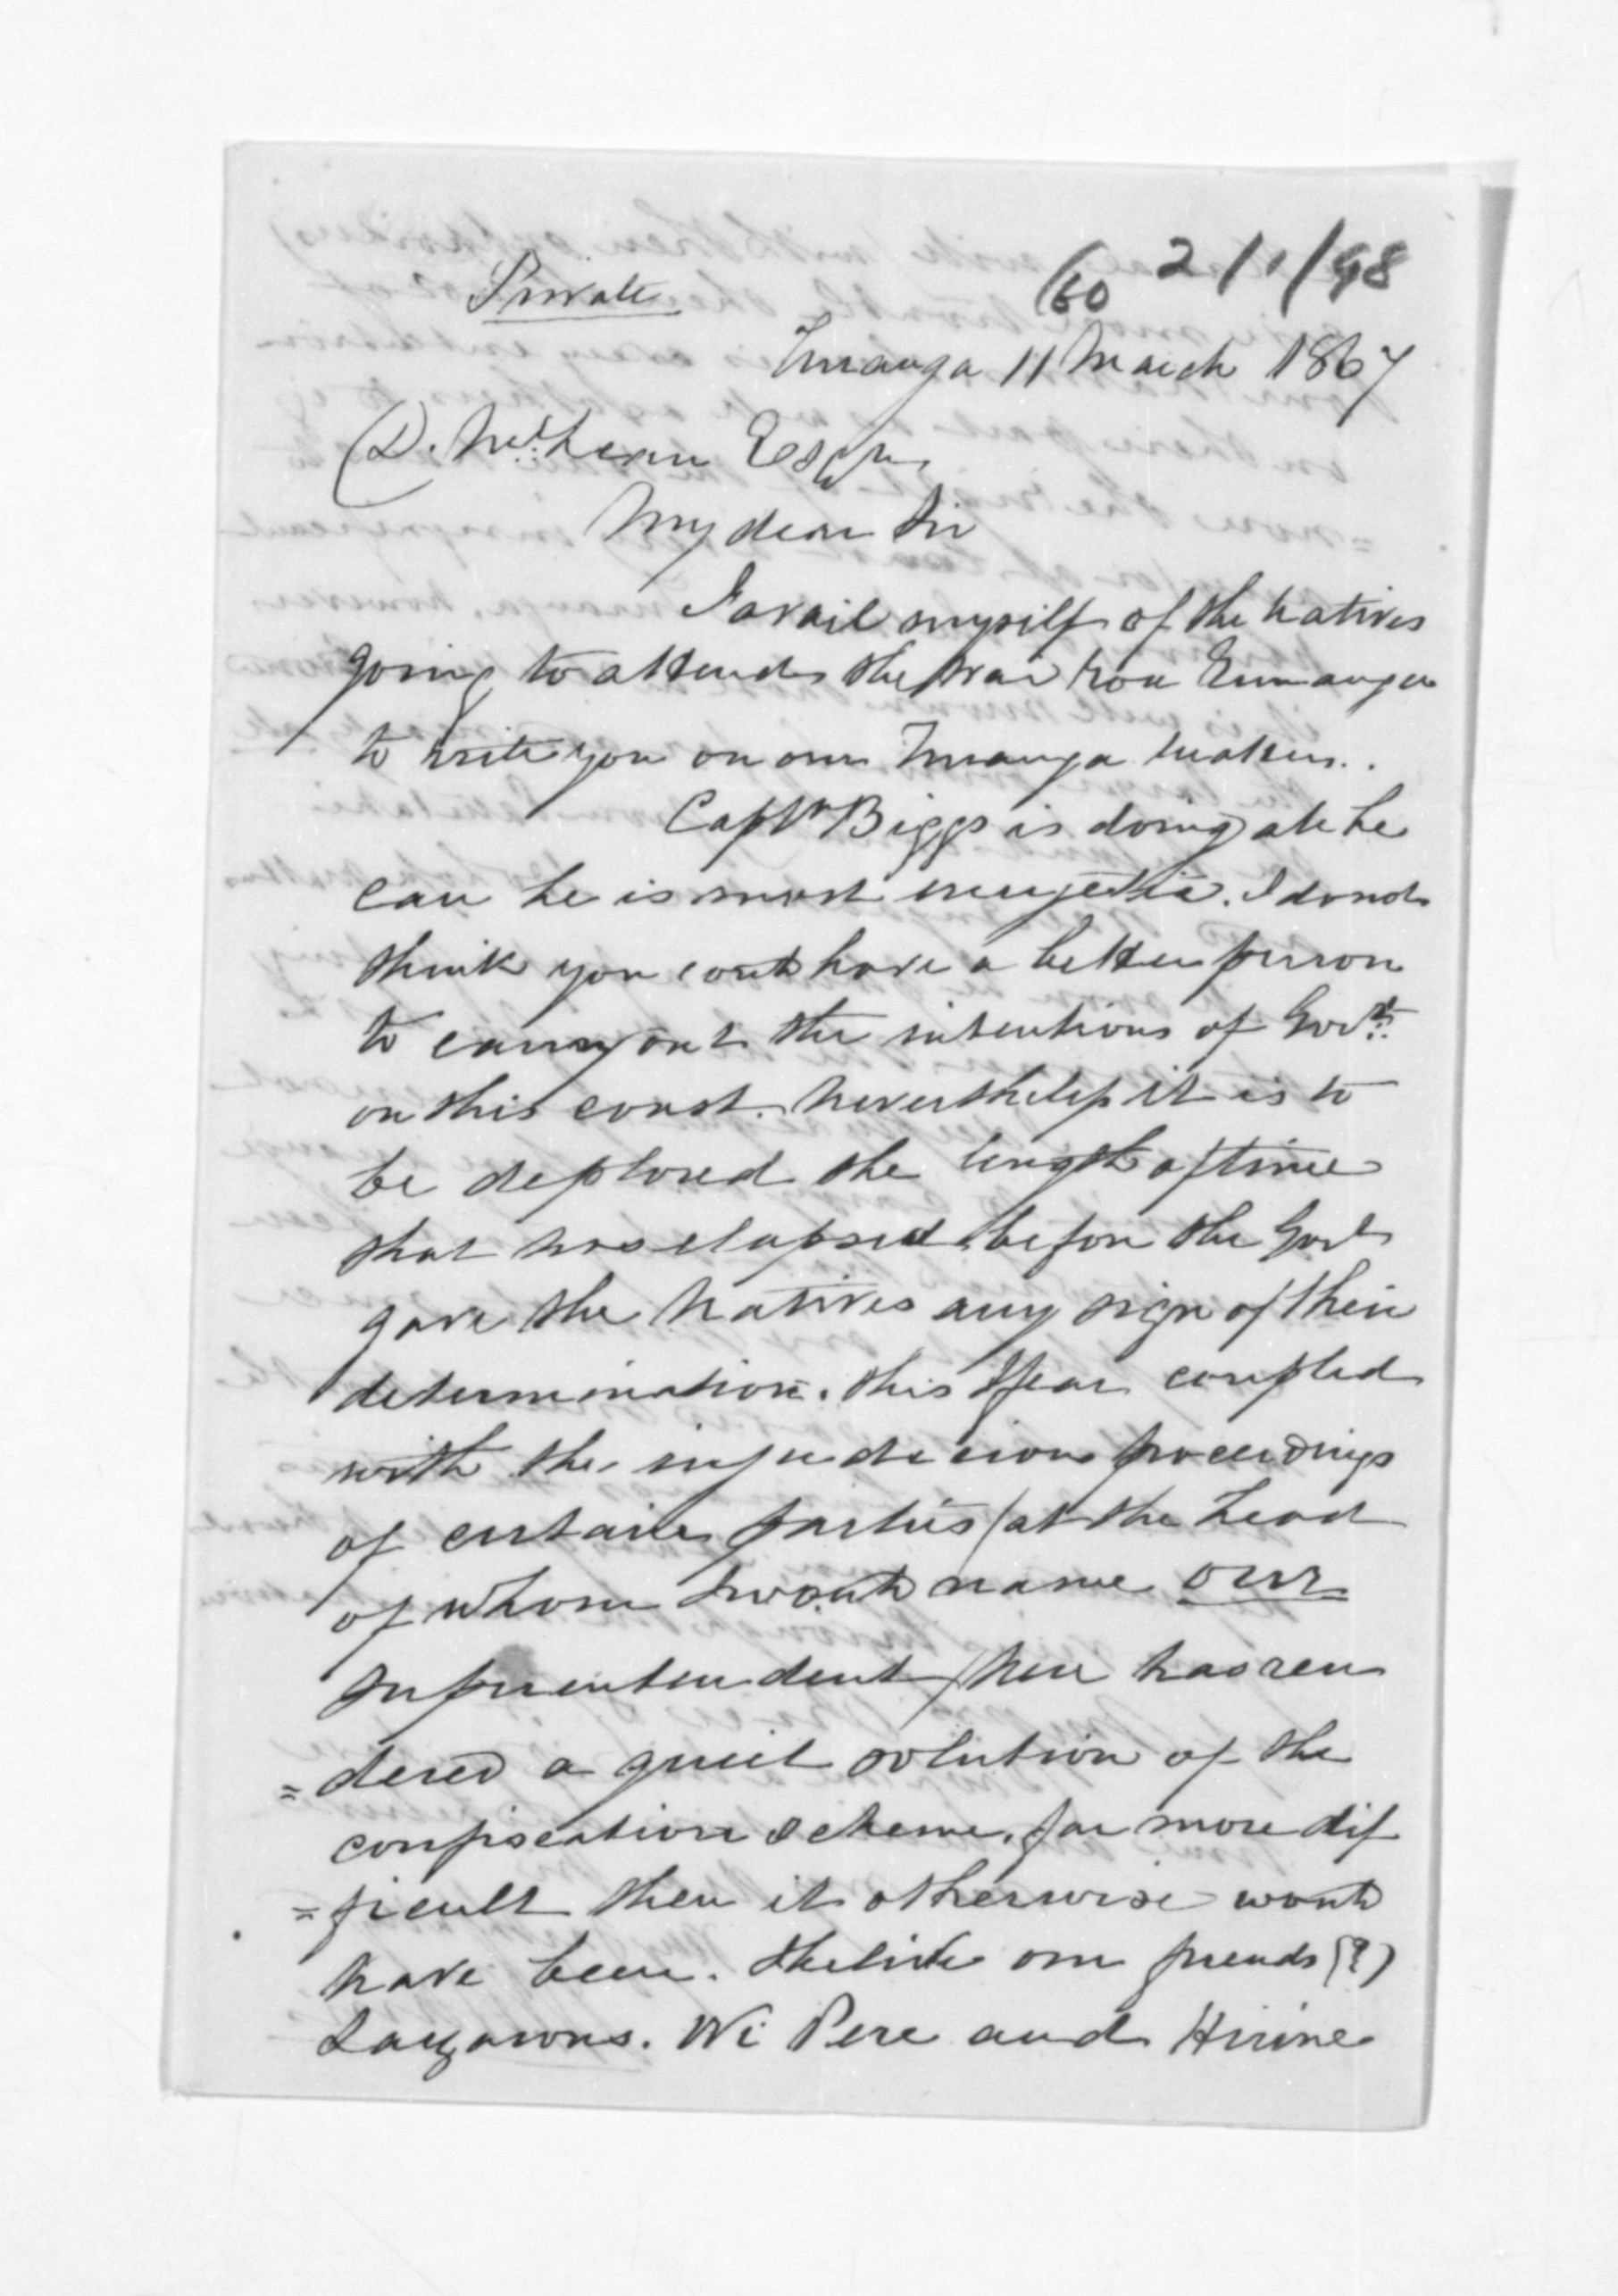 Private
(60 2/1/98
Turanga 11 March 1867
D. McLean Esqr
My dear Sir
I avail myself of the Natives
going to attend the Wai roa Runanga
to write you on our Turanga matters.
Captn Biggs is doing all he
can he is most energetic. I do not
think you could have a better person
to carry out the intentions of Govt:
on this coast. Nevertheless it is to
be deplored the length of time
that has elapsed before the Govt
gave the Natives any sign of their
determination. this I fear coupled
with the injudicious proceedings
of certain parties (at the head
of whom I would name our
Superintendent) here has ren
=dered a quiet solution of the
confiscation scheme, far more dif
=ficult then it otherwise would
have been. the link our friends (?)
Lazarus. Wi Pere and Hirine